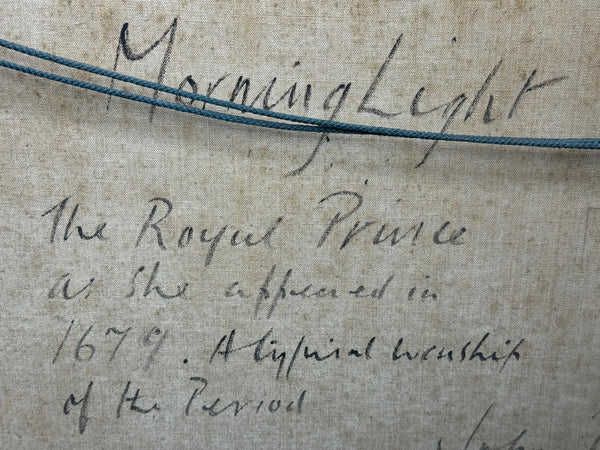 Morning Light
The Royal Prince
as she appeared in
1679. A typical warship
of the Period